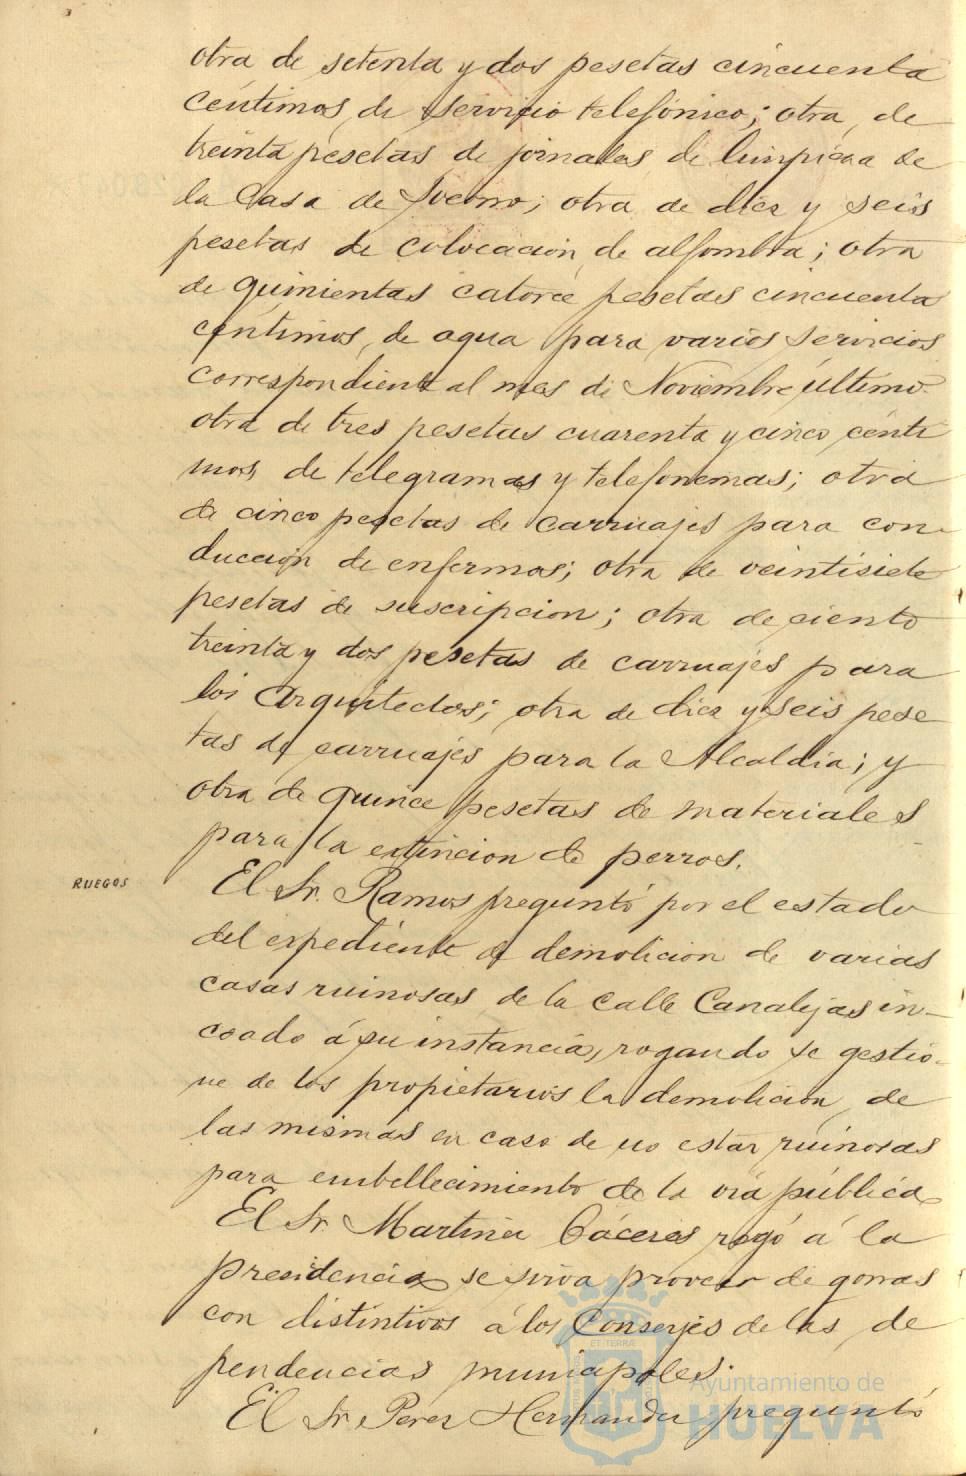 otra de setenta y dos pesetas cincuenta
céntimos, de servicio telefónico; otra, de
treinta pesetas de jornales, de limpieza de
la Casa de Socorro; otra de diez y seis
pesetas de colocación de alfombra; otra
de quinientas catorce pesetas cincuenta
céntimos, de agua para varios servicios
correspondiente al mes de Noviembre último
otra de tres pesetas cuarenta y cinco cénti
mos, de telegramas y telefonemas; otra
de cinco pesetas de carruajes para con-
ducción de enfermos; otra de veintisiete
pesetas de suscripcion; otra de ciento
treinta y dos pesetas de carruajes para
los Arquitectos; otra de diez y seis pese
tas de carruajes para la Alcaldía; y
otra de quince pesetas de materiales
para la extincion de perros.
RUEGOS
El Sr. Ramos preguntó por el estado
del expediente de demolicion de varias
casas ruinosas de la calle Canalejas in-
coado á su instancia, rogando se gestio-
ne de los propietarios la demolicion de
las mismas en caso de no estar ruinosas
para embellecimiento de la via pública
El Sr. Martinez Cáceres rogó á la
presidencia se sirva proveer de gorras
con distintivos á los Conserjes de las de
pendencias municipales.
El Sr. Perez Hernandez preguntó
Ayuntamiento de
HUELVA